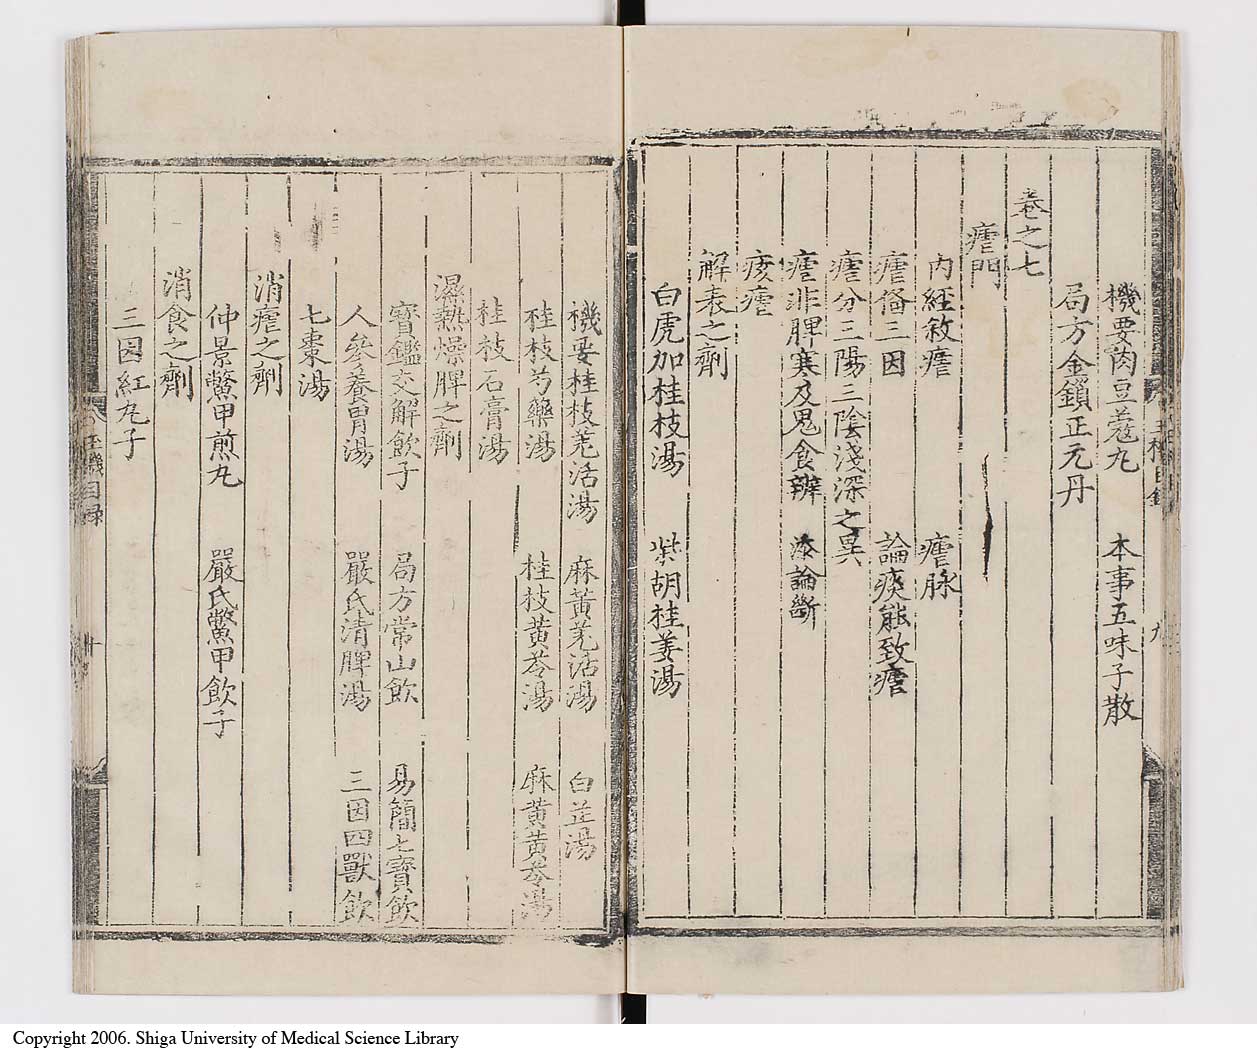 機要肉豆蔻丸　本事五味子散
局方金鎖正元丹
卷之七
瘧門
內經敘瘧　瘧脉
瘧俻三因　論痰能致瘧
瘧分三陽三陰淺深之異
瘧非脾寒及鬼食辨　添論斷
痎瘧
解表之劑
白虎加桂枝湯　柴胡桂姜湯
機要桂枝羌活湯　麻黃羌活湯　白芷湯
桂枝芍藥湯　桂枝黃芩湯　麻黃黃芩湯
桂枝石膏湯
濕熱燥脾之劑
寶鑑交解飲子　局方常山飲　易簡七寶飲
人參養胃湯　嚴氏清脾湯　三因四獸飲
七棗湯
消瘧之劑
仲景鱉甲煎丸　嚴氏鱉甲飲子
消食之劑
三因紅丸子
玉機目录
十
Copyright 2006. Shiga University of Medical Science Library